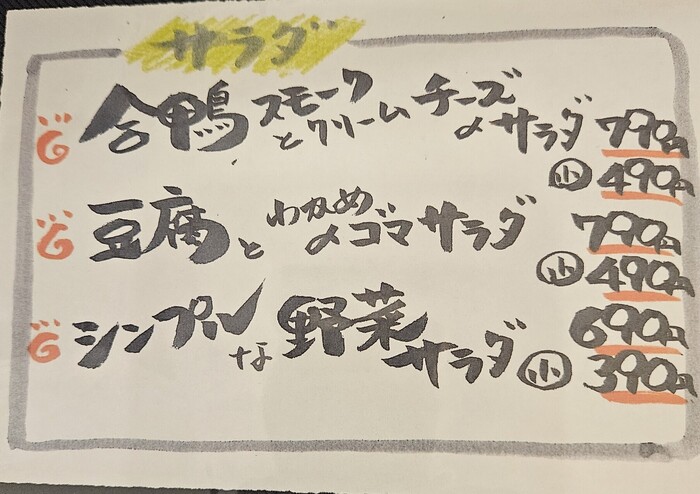 サラダ
合鴨スモークとクリームチーズのサラダ 790円
小 490円
豆腐とわかめのゴマサラダ 790円
小 490円
シンプルな野菜サラダ 690円
小 390円